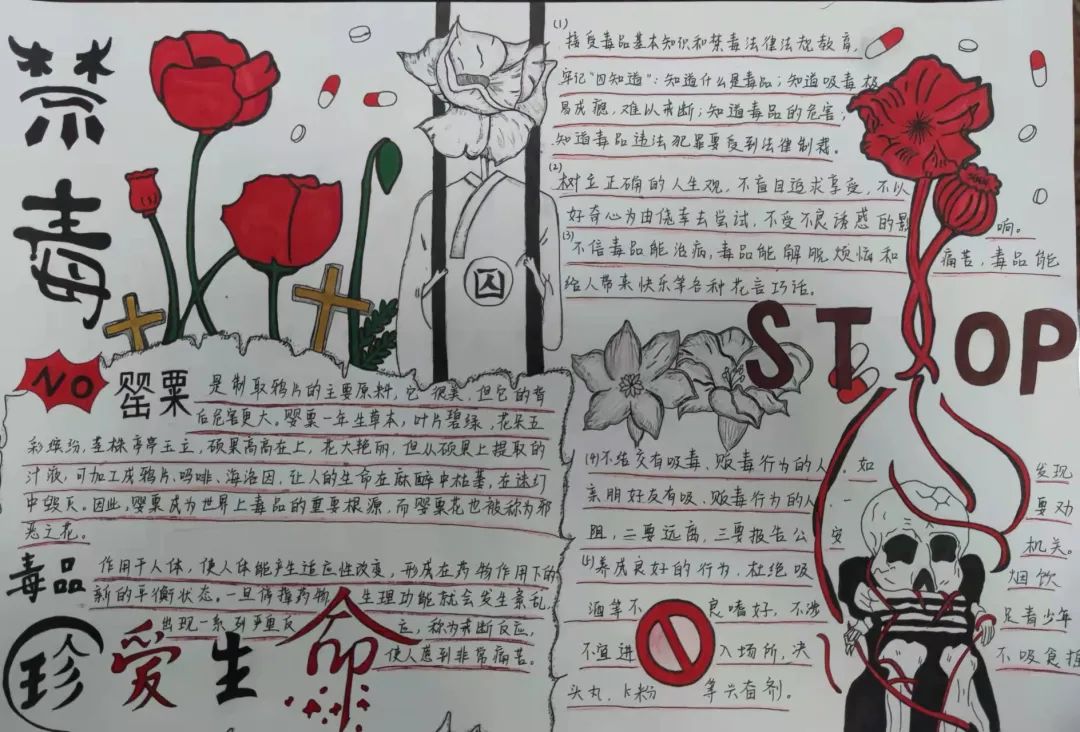 禁毒
NO
罂粟
是制取鸦片的主要原料,它很美,但它的背
后危害更大。罂粟一年生草本,叶片碧绿,花朵五
彩缤纷,茎株亭亭玉立,硕果高高在上,花大艳丽,但从硕果上提取的
汁液,可加工成鸦片、吗啡、海洛因,让人的生命在麻醉中枯萎,在迷幻
中毁灭。因此,罂粟成为世界上毒品的重要根源,而罂粟花也被称为邪
恶之花。
毒品
作用于人体,使人体能产生适应性改变,形成在药物作用下的
新的平衡状态。一旦停掉药物,生理功能就会发生紊乱,
出现一系列严重反应,称为戒断反应,
使人感到非常痛苦。
珍爱生命
囚
(1)
接受毒品基本知识和禁毒法律法规教育,
牢记“四知道”:知道什么是毒品;知道吸毒极
易成瘾,难以戒断;知道毒品的危害;
知道毒品违法犯罪要受到法律制裁。
(2)
树立正确的人生观,不盲目追求享受,不以
好奇心为由侥幸去尝试,不受不良诱惑的影响。
(3)
不信毒品能治病,毒品能解脱烦恼和痛苦,毒品能
给人带来快乐等各种花言巧话。
STOP
(4)不结交有吸毒、贩毒行为的人。如发现
亲朋好友有吸、贩毒行为的人,要劝
阻,二要远离,三要报告公安机关。
(5)养成良好的行为,杜绝吸烟饮
酒等不良嗜好,不涉足青少年
不宜进入场所,决不吸食摇
头丸、K粉等兴奋剂。